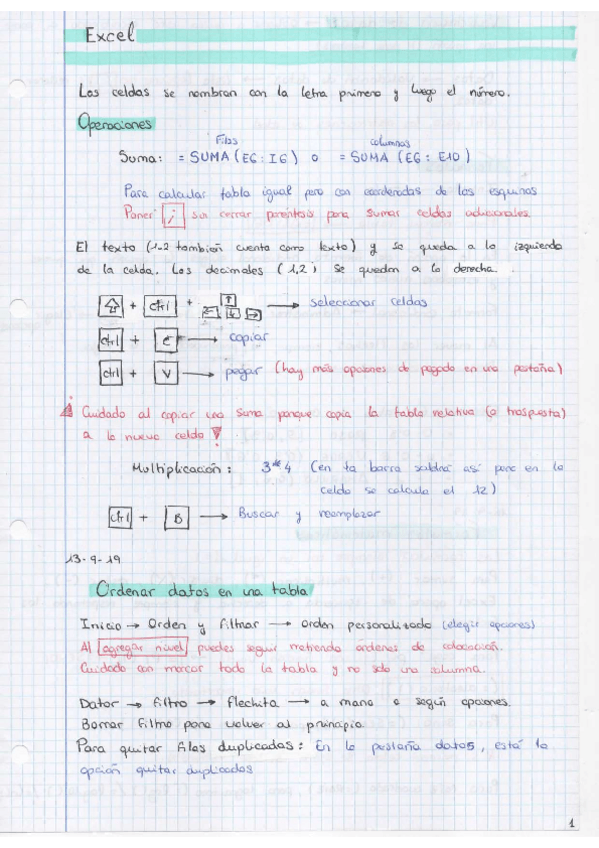 Excel
Las celdas se nombran con la letra primero y luego el número.
Operaciones
Filas columnas
Suma: = SUMA (E6: I6) o = SUMA (E6: E10)
Para calcular tabla igual pero con coordenadas de las esquinas
Poner ; sin cerrar paréntesis para sumar celdas adicionales
El texto (1-2 también cuenta como texto) y se queda a la izquierda
de la celda. Los decimales (1,2) se quedan a la derecha.
⇧ + Ctrl + ↑ ← ↓ → → seleccionar celdas
Ctrl + C → copiar
Ctrl + V → pegar (hay más opciones de pegado en una pestaña)
⚠ Cuidado al copiar una suma porque copia la tabla relativa (o traspuesta)
a la nueva celda !
Multiplicación: 3*4 (en la barra saldrá así pero en la
celda se calcula el 12)
Ctrl + B → Buscar y reemplazar
13-9-19
Ordenar datos en una tabla
Inicio → Orden y filtrar → orden personalizado (elegir opciones)
Al agregar nivel puedes seguir metiendo órdenes de colocación.
Cuidado con marcar toda la tabla y no solo una columna.
Dator → filtro → flechita → a mano o según opciones.
Borrar filtro para volver al principio.
Para quitar filas duplicadas: En la pestaña datos, está la
opción quitar duplicados
1